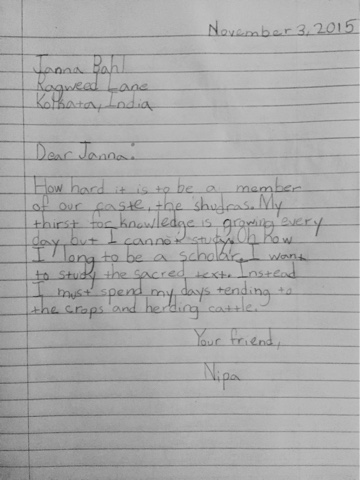 November 3, 2015
Janna Bahl
Ragweed Lane
Kolkata, India
Dear Janna:
How hard it is to be a member
of our caste, the shudras. My
thirst for knowledge is growing every
day, but I cannot study. Oh how
I long to be a scholar. I want
to study the sacred text. Instead
I must spend my days tending to
the crops and herding cattle.
Your friend,
Nipa